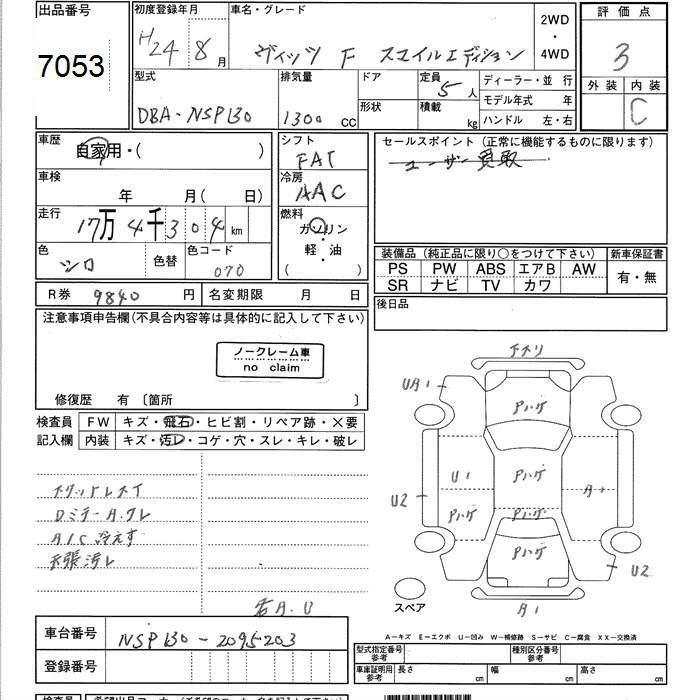 出品番号
7053
初度登録年月
H24 8 月
車名・グレード
ヴィッツ F スマイルエディション
2WD
・
4WD
評価点
3
外装 内装
C
型式
DBA-NSP130
排気量
1300 CC
ドア
形状
定員
5 人
積載
kg
ディーラー・並 行
モデル年式 年
ハンドル 左・右
車歴
自家用・( )
車検
年 月( 日)
走行
17万4千304 km
色
シロ
色替
色コード
070
シフト
FAT
冷房
AAC
燃料
ガソリン
軽・油
( )
セールスポイント (正常に機能するものに限ります)
ユーザー買取
装備品 (純正品に限り○をつけて下さい)
PS PW ABS エアB AW
SR ナビ TV カワ
新車保証書
有・無
R券 9840 円
名変期限 月 日
後日品
注意事項申告欄(不具合内容等は具体的に記入して下さい)
ノークレーム車
no claim
修復歴 有 〔箇所 〕
検査員
記入欄
FW キズ・飛石・ヒビ割・リペア跡・×要
内装 キズ・汚レ・コゲ・穴・スレ・キレ・破レ
A/C 冷えず
天張汚レ
右A.U
下ホリ
UA1
Pハゲ
U1
Pハゲ
A1
U2
Pハゲ
Pハゲ
Pハゲ
U2
A1
スペア
A-キズ E-エクボ U-凹み W-補修跡 S-サビ C-腐食 XX-交換済
車台番号
NSP130-2095203
登録番号
型式指定番号
参考
種別区分番号
参考
車庫証明用
参考
長さ
cm
幅
cm
高さ
cm